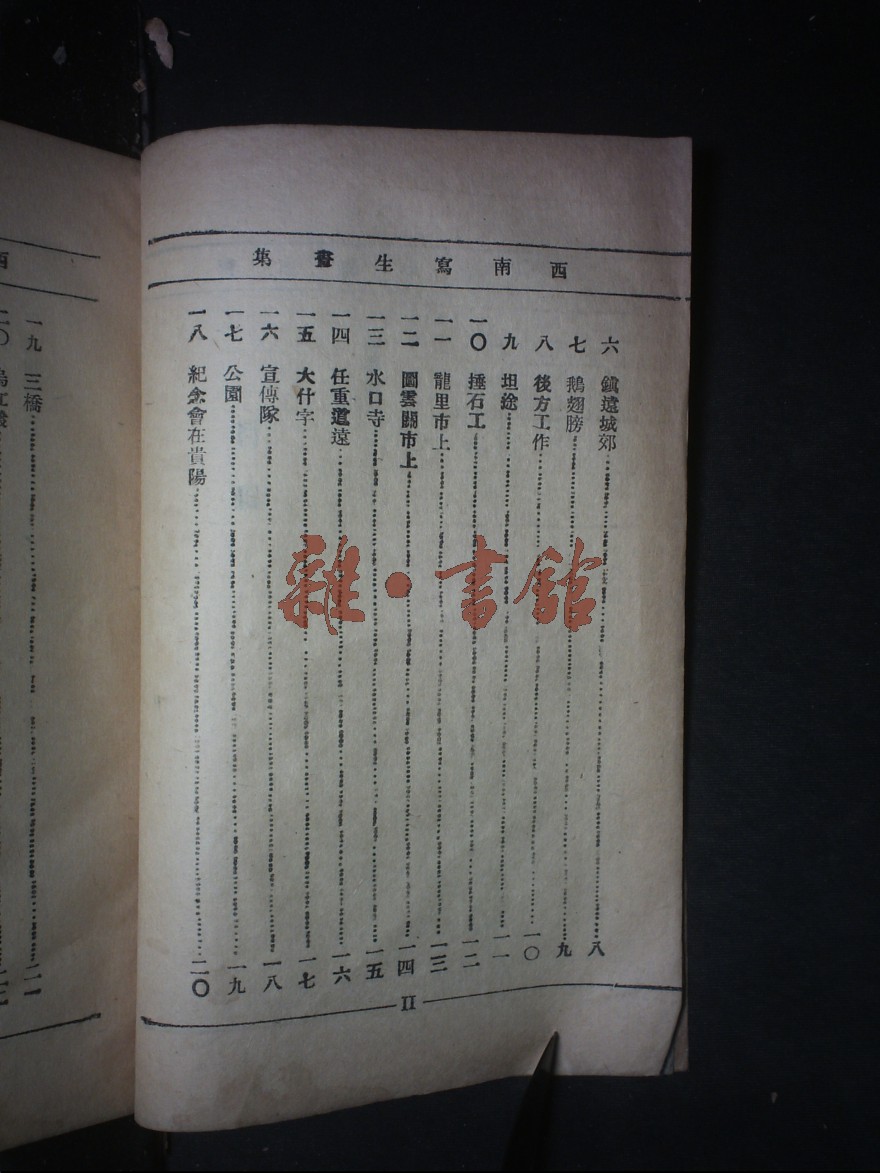 西南寫生畫集
六 鎭遠城郊 八
七 鵝翅膀 九
八 後方工作 一〇
九 坦途 一一
一〇 捶石工 一二
一一 龍里市上 一三
一二 圖雲關市上 一四
一三 水口寺 一五
一四 任重道遠 一六
一五 大什字 一七
一六 宣傳隊 一八
一七 公園 一九
一八 紀念會在貴陽 二〇
II
西
一九 三橋 二一
二〇 烏江
雜·書館